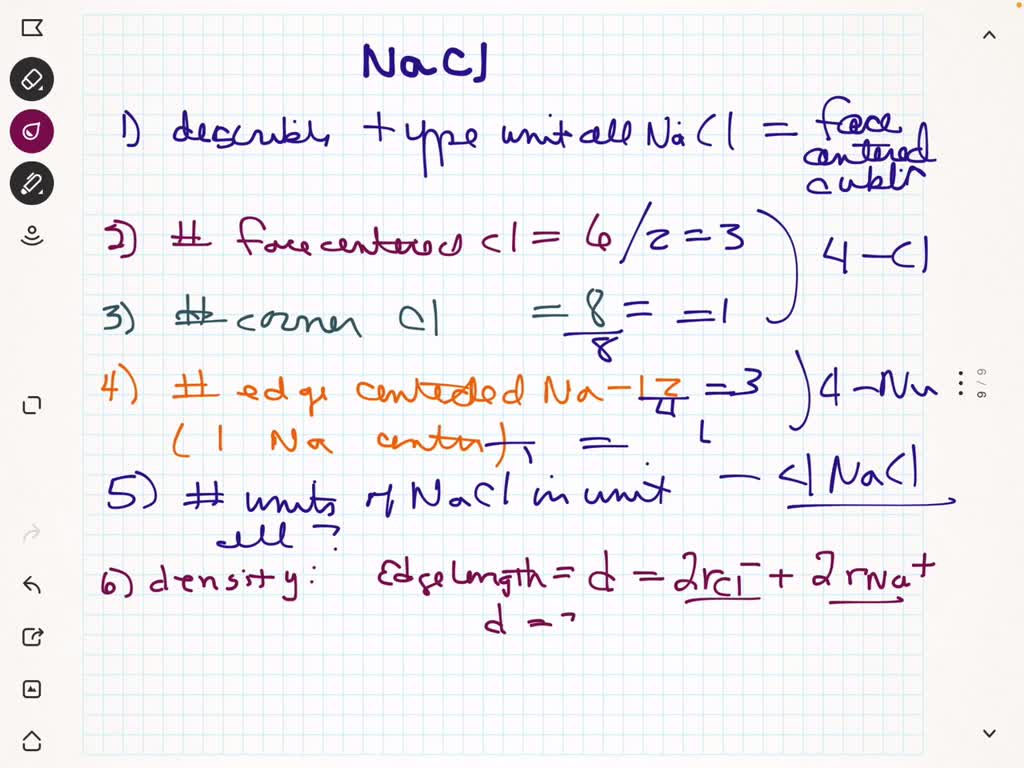 NaCl
1) describe type unit cell NaCl = face
centered
cubic
2) # face centered Cl = 6/2 = 3
4 - Cl
3) # corner Cl = 8/8 = = 1
4) # edge centeded Na - 12/4 = 3
4 - Na
( 1 Na center) = 1
5) # units of NaCl in unit - 4 NaCl
cell ?
6) density: Edge length = d = 2rCl⁻ + 2rNa⁺
d = ?
6/6